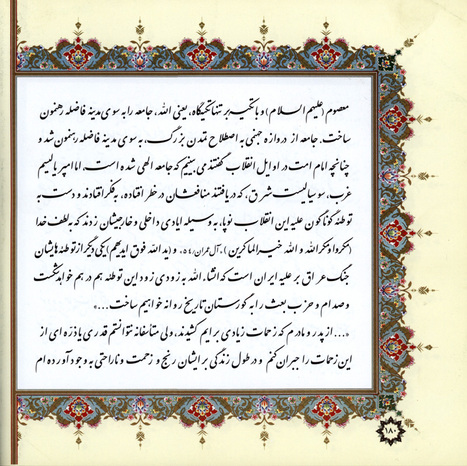 معصوم (علیهم السلام) و با تکیه بر تنها تکیه‌گاه، یعنی الله، جامعه را به سوی مدینهٔ فاضله رهنمون
ساخت. جامعه از دروازهٔ جهنمی به اصطلاح تمدن بزرگ، به سوی مدینهٔ فاضله رهنمون شد و
چنانچه امام امت در اوایل انقلاب گفتند می‌بینیم که جامعه الهی شده است، اما امپریالیسم
غرب، سوسیالیست شرق، که دریافتند منافعشان در خطر افتاده، به فکر افتادند و دست به
توطئه گوناگون علیه این انقلاب نوپا، به وسیله ایادی داخلی و خارجیشان زدند که به لطف خدا
(مکروا و مکرالله و الله خیرالماکرین)، آل عمران/۵۴، و (ید الله فوق ایدیهم) یکی دیگر از توطئه‌هایشان
جنگ عراق بر علیه ایران است که انشاءالله به زودی زود این توطئه هم در هم خواهد شکست
و صدام و حزب بعث را به گورستان تاریخ روانه خواهیم ساخت...»
«... از پدر و مادرم که زحمات زیادی برایم کشیدند، ولی متأسفانه نتوانستم قدری یا ذره‌ای از
این زحمات را جبران کنم و در طول زندگی برایشان رنج و زحمت و ناراحتی به وجود آورده‌ام
۱۸۰